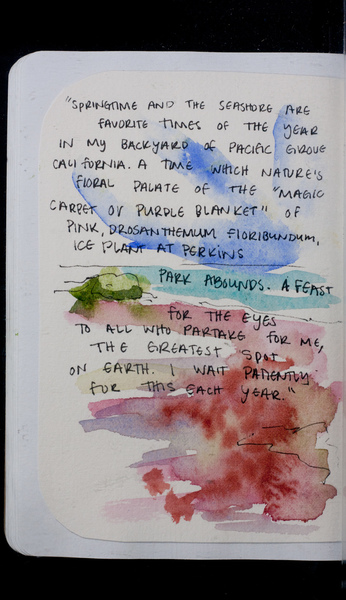 "SPRINGTIME AND THE SEASHORE ARE
FAVORITE TIMES OF THE YEAR
IN MY BACKYARD OF PACIFIC GROVE
CALIFORNIA. A TIME WHICH NATURE'S
FLORAL PALATE OF THE "MAGIC
CARPET OV PURPLE BLANKET" OF
PINK, DROSANTHEMUM FLORIBUNDUM,
ICE PLANT AT PERKINS
PARK ABOUNDS. A FEAST
FOR THE EYES
TO ALL WHO PARTAKE FOR ME,
THE GREATEST SPOT
ON EARTH. I WAIT PATIENTLY
FOR THIS EACH YEAR."